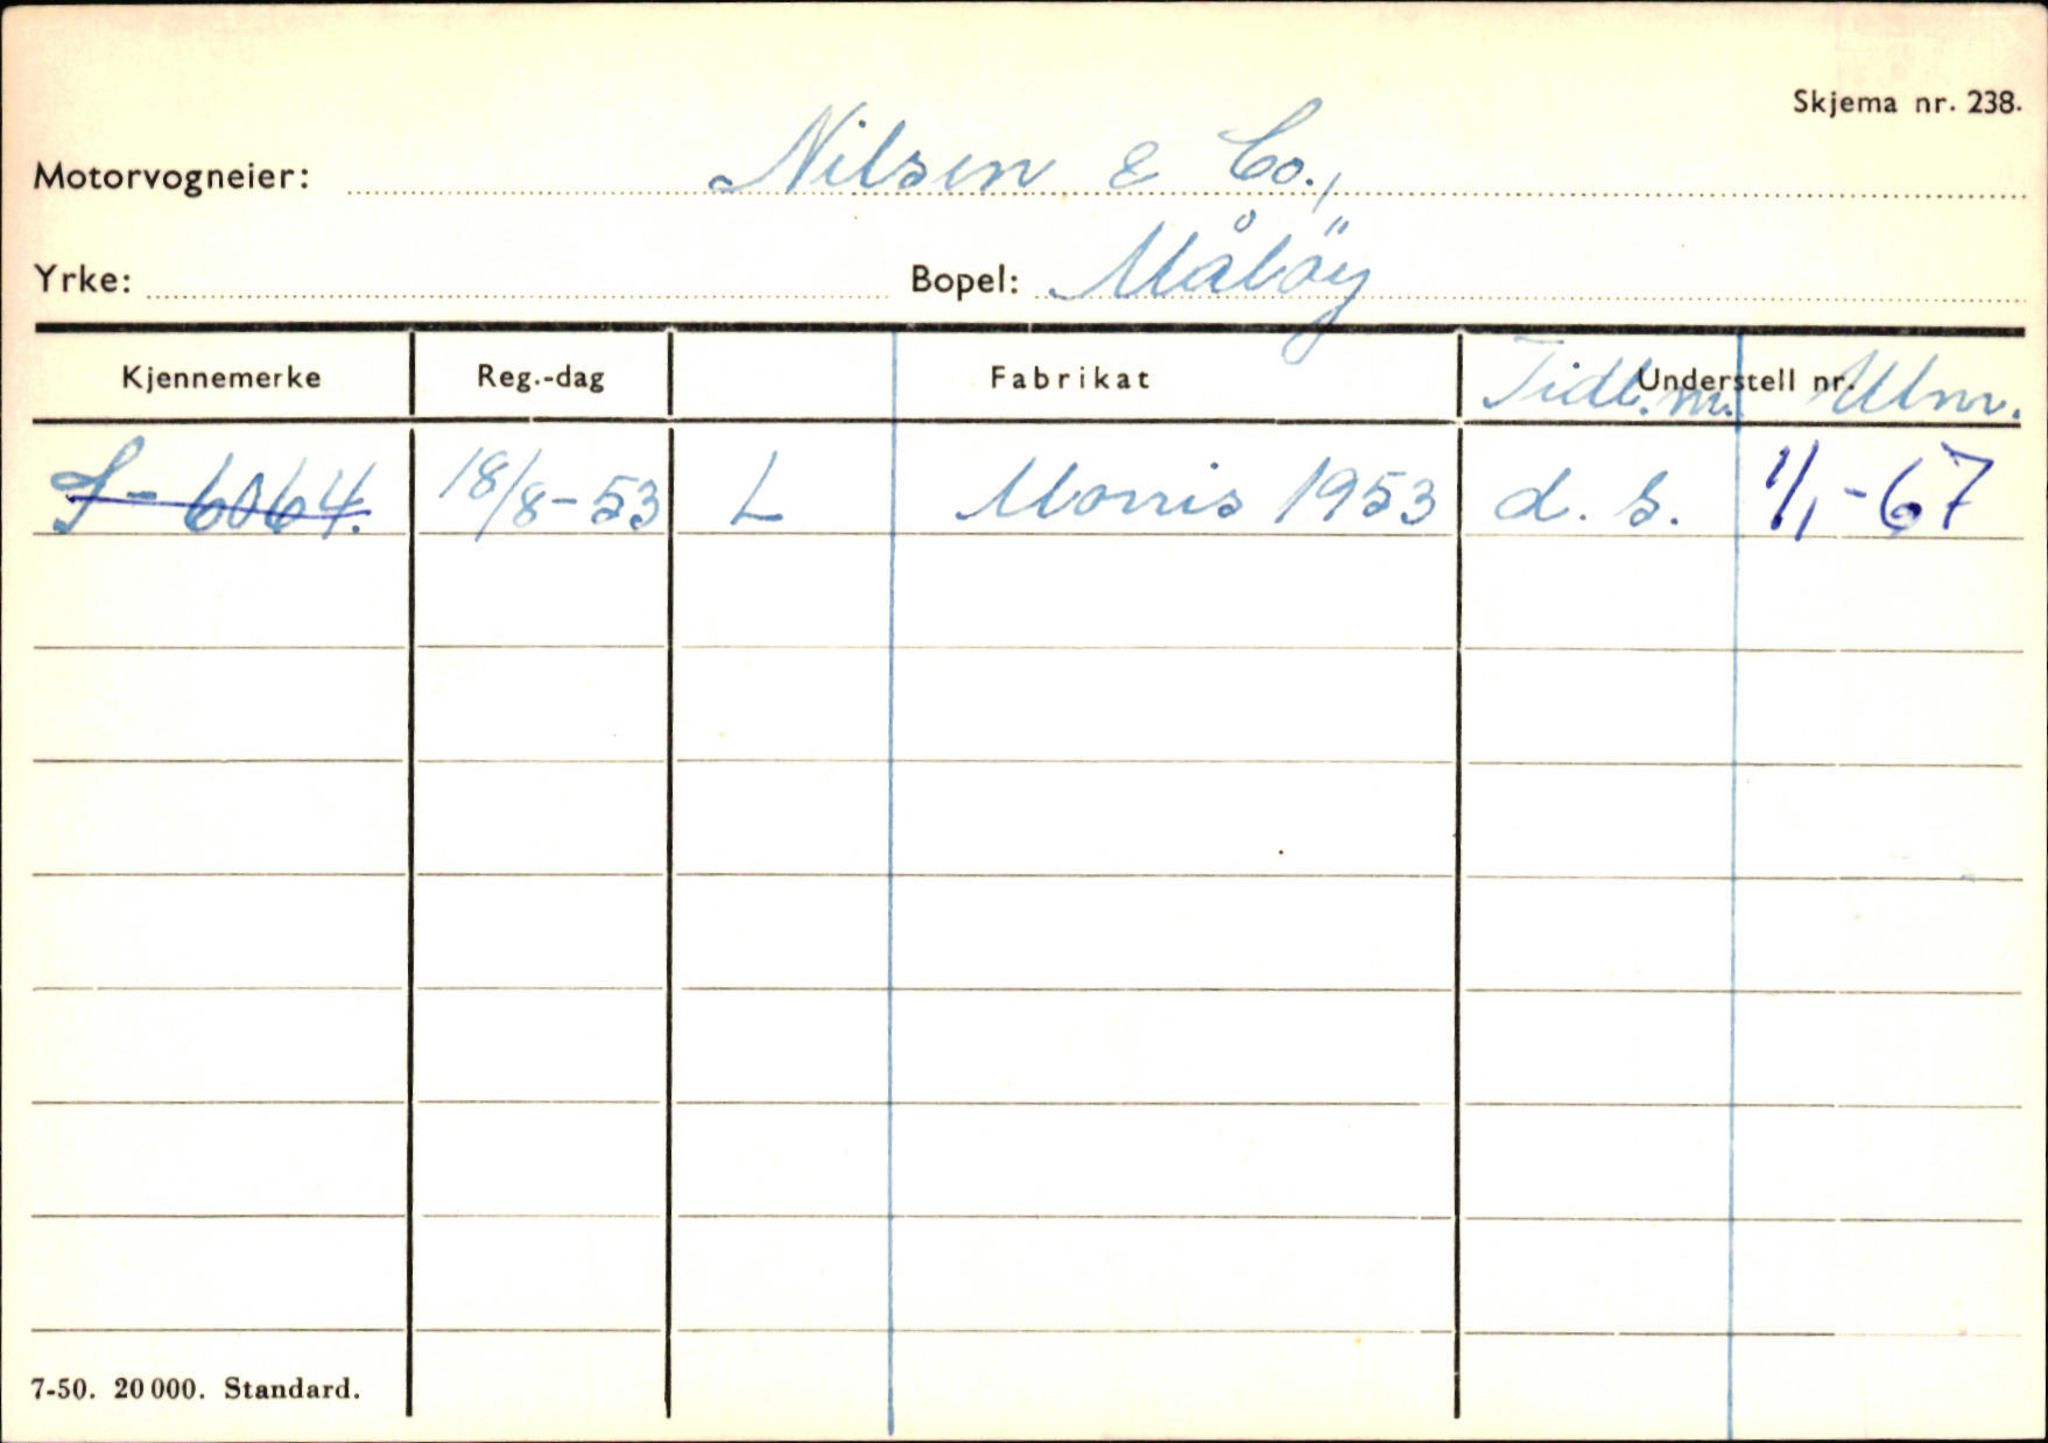 Skjema nr. 238.
Motorvogneier: Nilsen & Co.,
Yrke: Bopel: Måløy
Kjennemerke Reg.-dag Fabrikat Understell nr. Tidl. m. Ulm.
S-6064. 18/8-53 L Morris 1953 d. s. 1/1-67
7-50. 20 000. Standard.